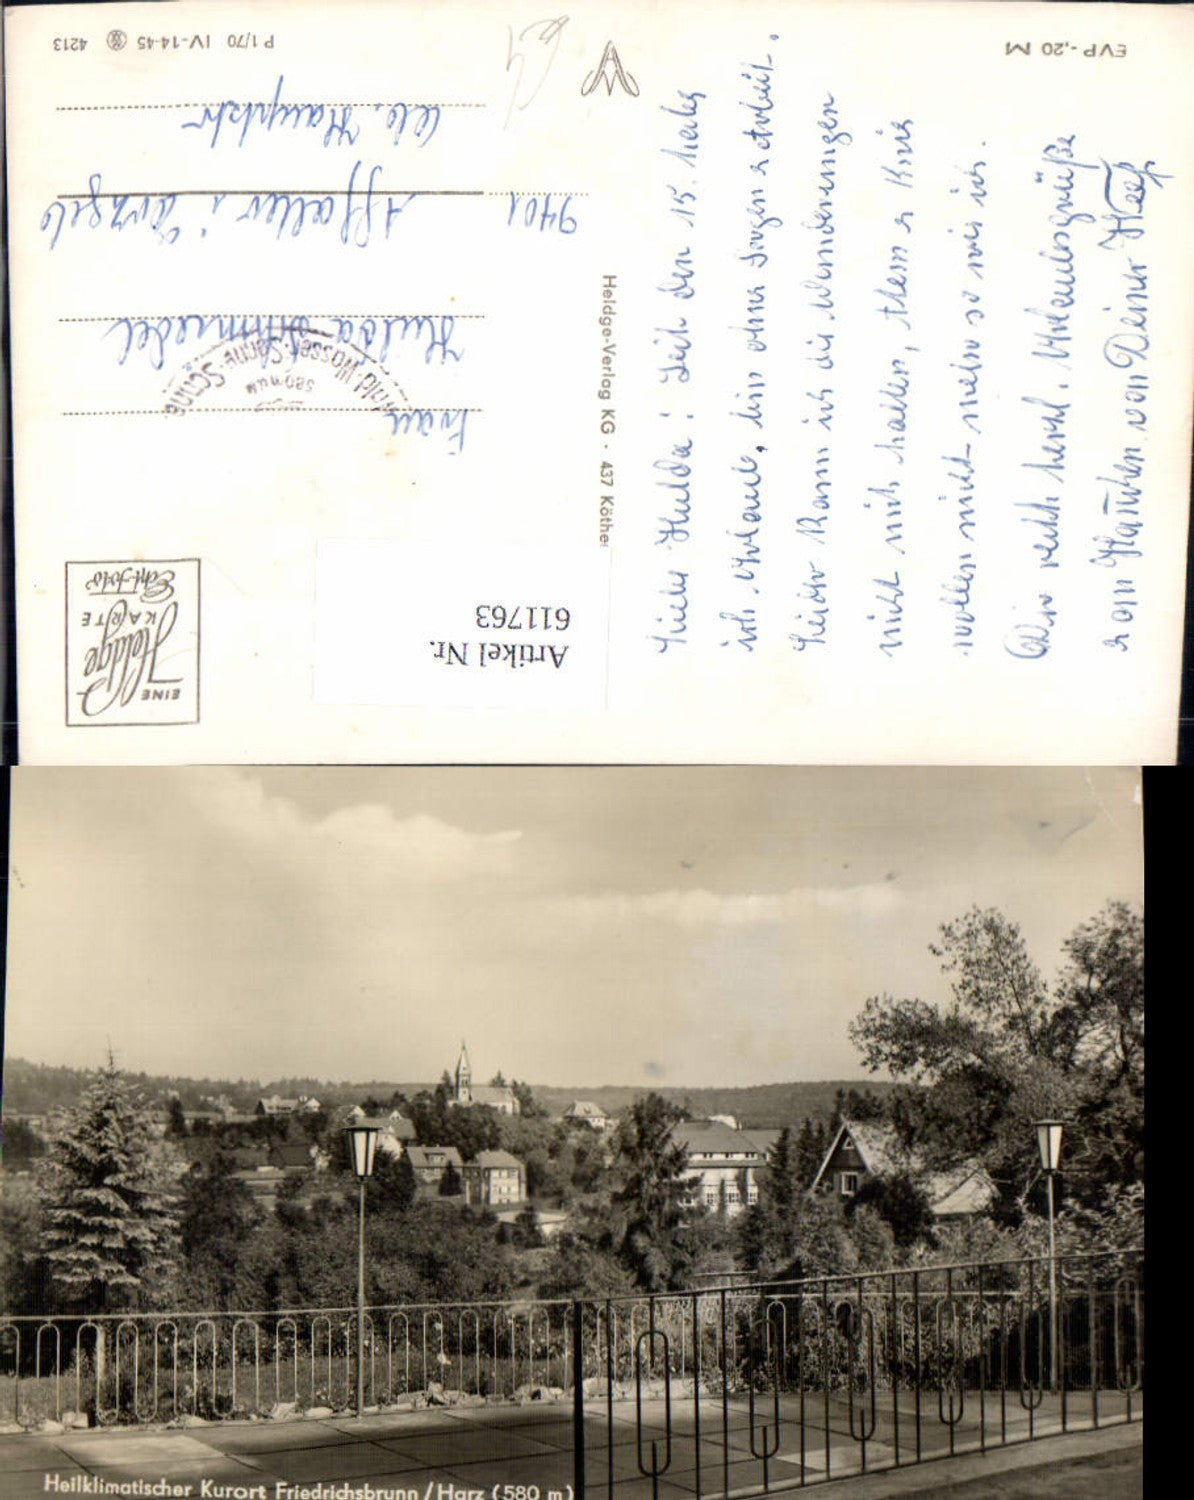 EVP -,20 M
P 1/70 IV-14-45 4213
Liebe Hulda! Seit den 15. habe
ich Urlaub, bin ohne Sorgen u Arbeit.
Leider kann ich die Wanderungen
nicht mit halten, Atem u Knie
wollen nicht mehr so wie ich.
Dir recht herzl. Urlaubsgrüße
von Deiner
Heldge-Verlag KG · 437 Köthe
EINE
Heldge
KARTE
Echt-foto
Wald · Wasser · Sonne
580 m ü. M.
Frau
Hulda
9401 Affalter i/Erzgeb
Hauptstr
Artikel Nr.
611763
Heilklimatischer Kurort Friedrichsbrunn / Harz (580 m)